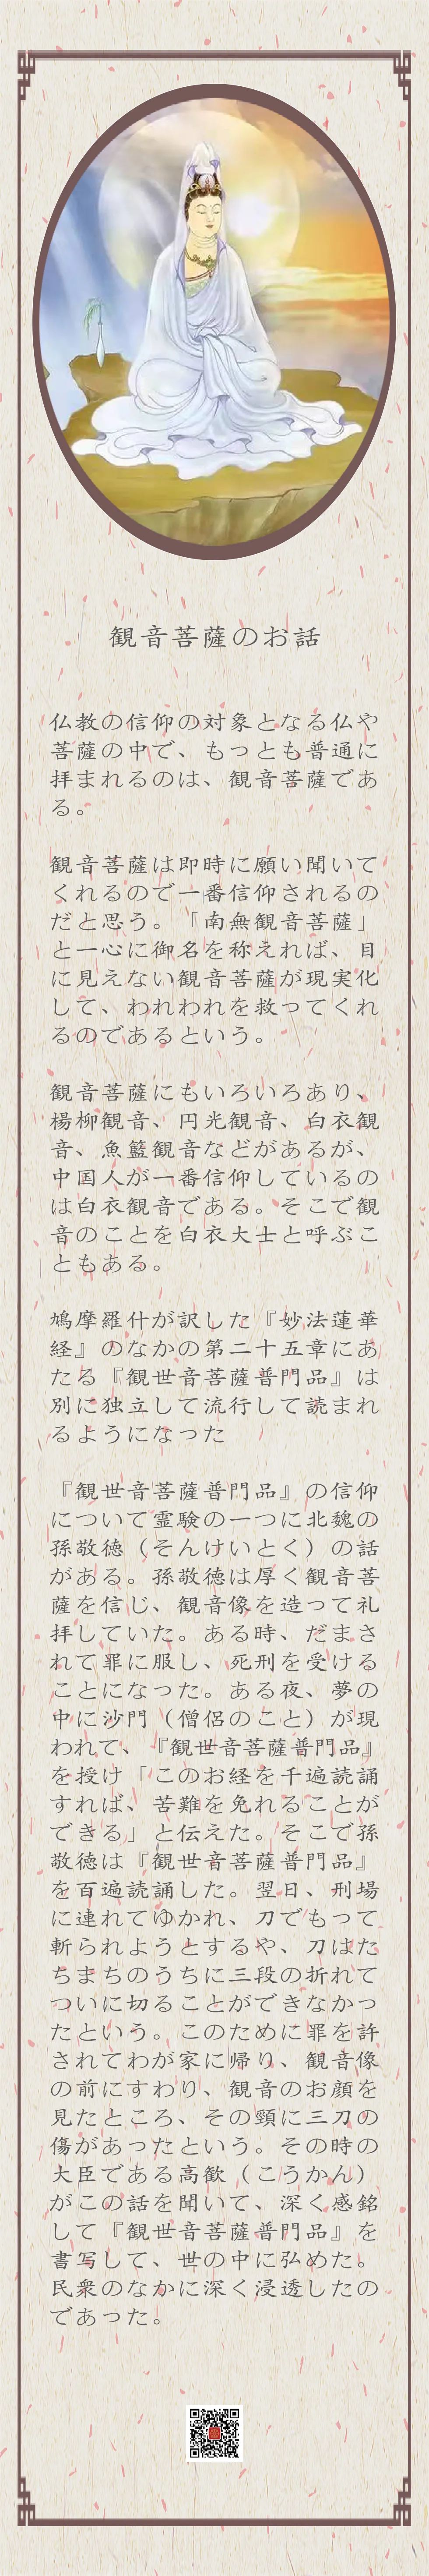 観音菩薩のお話
仏教の信仰の対象となる仏や
菩薩の中で、もっとも普通に
拝まれるのは、観音菩薩であ
る。
観音菩薩は即時に願い聞いて
くれるので一番信仰されるの
だと思う。「南無観音菩薩」
と一心に御名を称えれば、目
に見えない観音菩薩が現実化
して、われわれを救ってくれ
るのであるという。
観音菩薩にもいろいろあり、
楊柳観音、円光観音、白衣観
音、魚籃観音などがあるが、
中国人が一番信仰しているの
は白衣観音である。そこで観
音のことを白衣大士と呼ぶこ
ともある。
鳩摩羅什が訳した『妙法蓮華
経』のなかの第二十五章にあ
たる『観世音菩薩普門品』は
別に独立して流行して読まれ
るようになった
『観世音菩薩普門品』の信仰
について霊験の一つに北魏の
孫敬徳（そんけいとく）の話
がある。孫敬徳は厚く観音菩
薩を信じ、観音像を造って礼
拝していた。ある時、だまさ
れて罪に服し、死刑を受ける
ことになった。ある夜、夢の
中に沙門（僧侶のこと）が現
われて、『観世音菩薩普門品』
を授け「このお経を千遍読誦
すれば、苦難を免れることが
できる」と伝えた。そこで孫
敬徳は『観世音菩薩普門品』
を百遍読誦した。翌日、刑場
に連れてゆかれ、刀でもって
斬られようとするや、刀はた
ちまちのうちに三段の折れて
ついに切ることができなかっ
たという。このために罪を許
されてわが家に帰り、観音像
の前にすわり、観音のお顔を
見たところ、その頸に三刀の
傷があったという。その時の
大臣である高歓（こうかん）
がこの話を聞いて、深く感銘
して『観世音菩薩普門品』を
書写して、世の中に弘めた。
民衆のなかに深く浸透したの
であった。